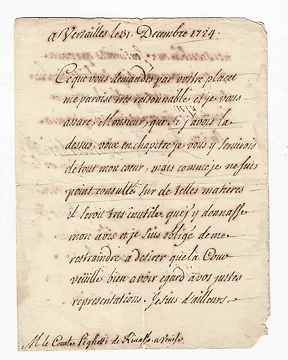 a Versailles le 31. Decembre 1724.
Ce que vous demandes par vostre placet
me paroist tres raisonnable et je vous
assure, Monsieur, que si j'avois la
dessus, voix en chapitre je vous y servirois
de tout mon cœur, mais comme je ne suis
point consulté sur de telles matieres
il seroit tres inutile que j'y donnasse
mon avis et je suis obligé de me
restraindre a desirer que la Cour
veuille bien avoir egard a vos justes
representations. Je suis d'ailleurs.
M. le Comte Pighetti de Rivasso a Venise